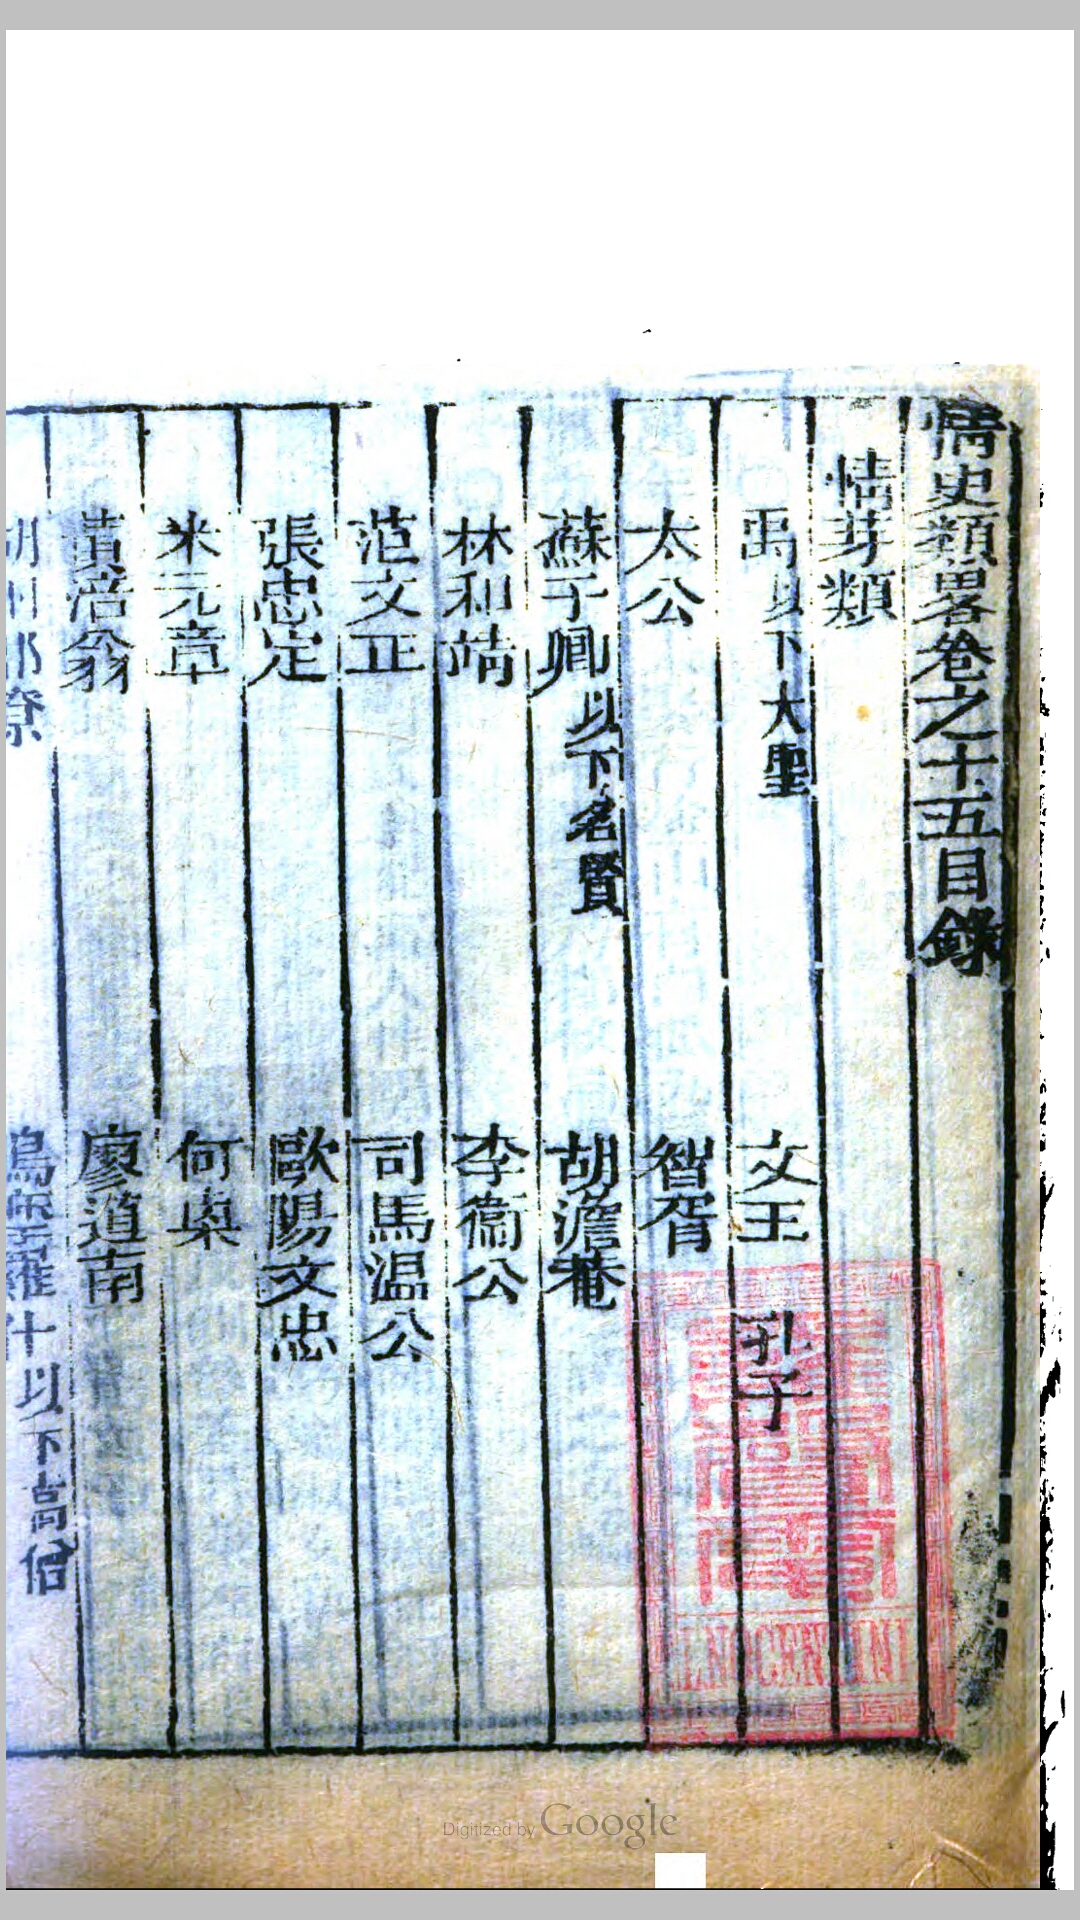 情史類畧卷之十五目錄
情芽類
禹以下大聖 文王 孔子
太公 智胥
蘇子卿以下名賢 胡澹菴
林和靖 李衞公
范文正 司馬温公
張忠定 歐陽文忠
米元章 何㮚
黄涪翁 廖道南
以下高僧
Digitized by Google